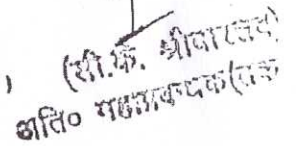 (सी.के. श्रीवास्तव)
अति० महाप्रबन्धक(तक